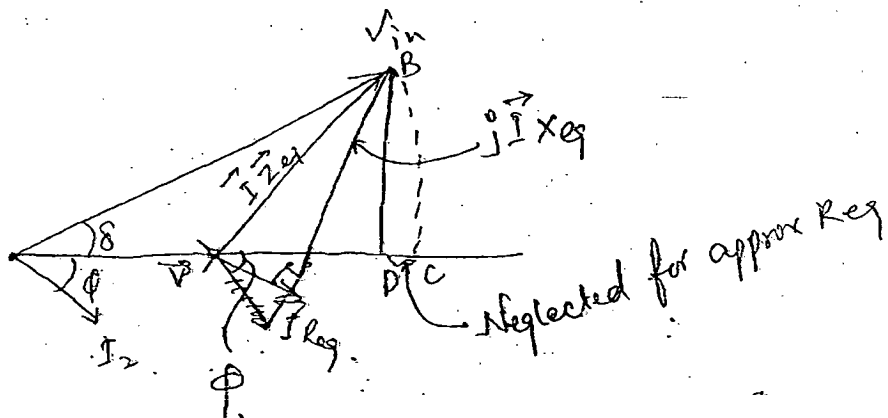 Vin
B
jI Xeq
I Zeq
δ
φ
V
D C
Neglected for approx Req
I Req.
I₂
φ